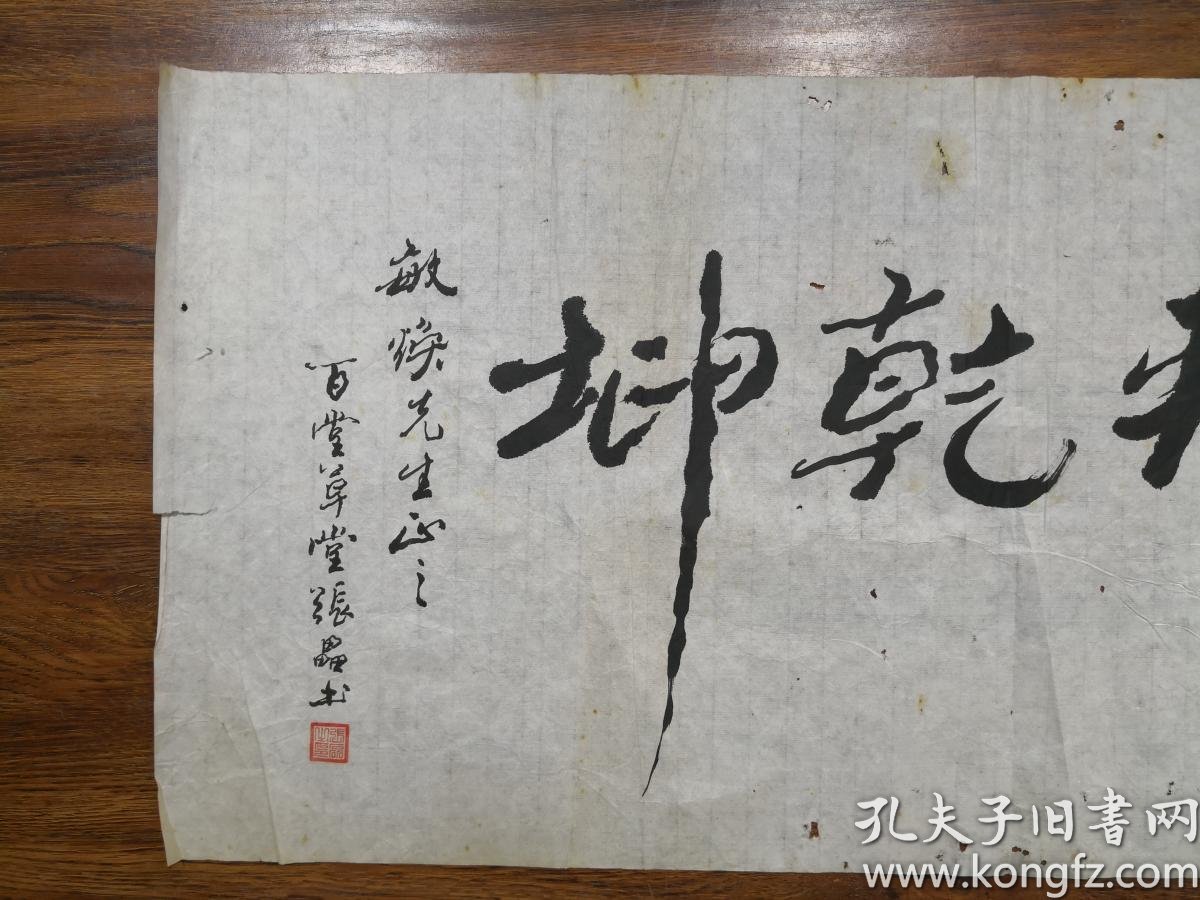 乾坤
敏焕先生正之
百堂草堂張畾书
孔夫子旧書网
www.kongfz.com